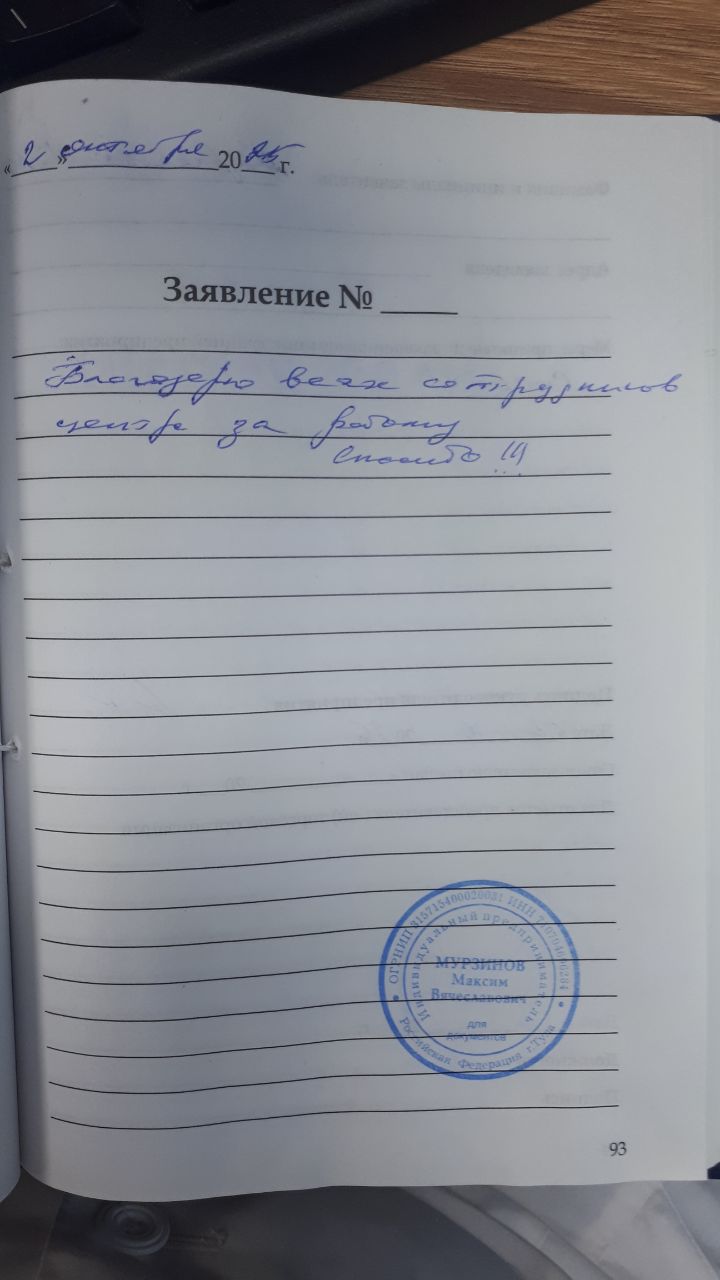 «2» октября 2025 г.
Заявление №
Благодарю всех сотрудников
центра за работу
Спасибо !!!
ОГРНИП 315715400020031 ИНН
Индивидуальный предприниматель
МУРЗИНОВ
Максим
Вячеславович
для
документов
Российская Федерация г.Тула
93